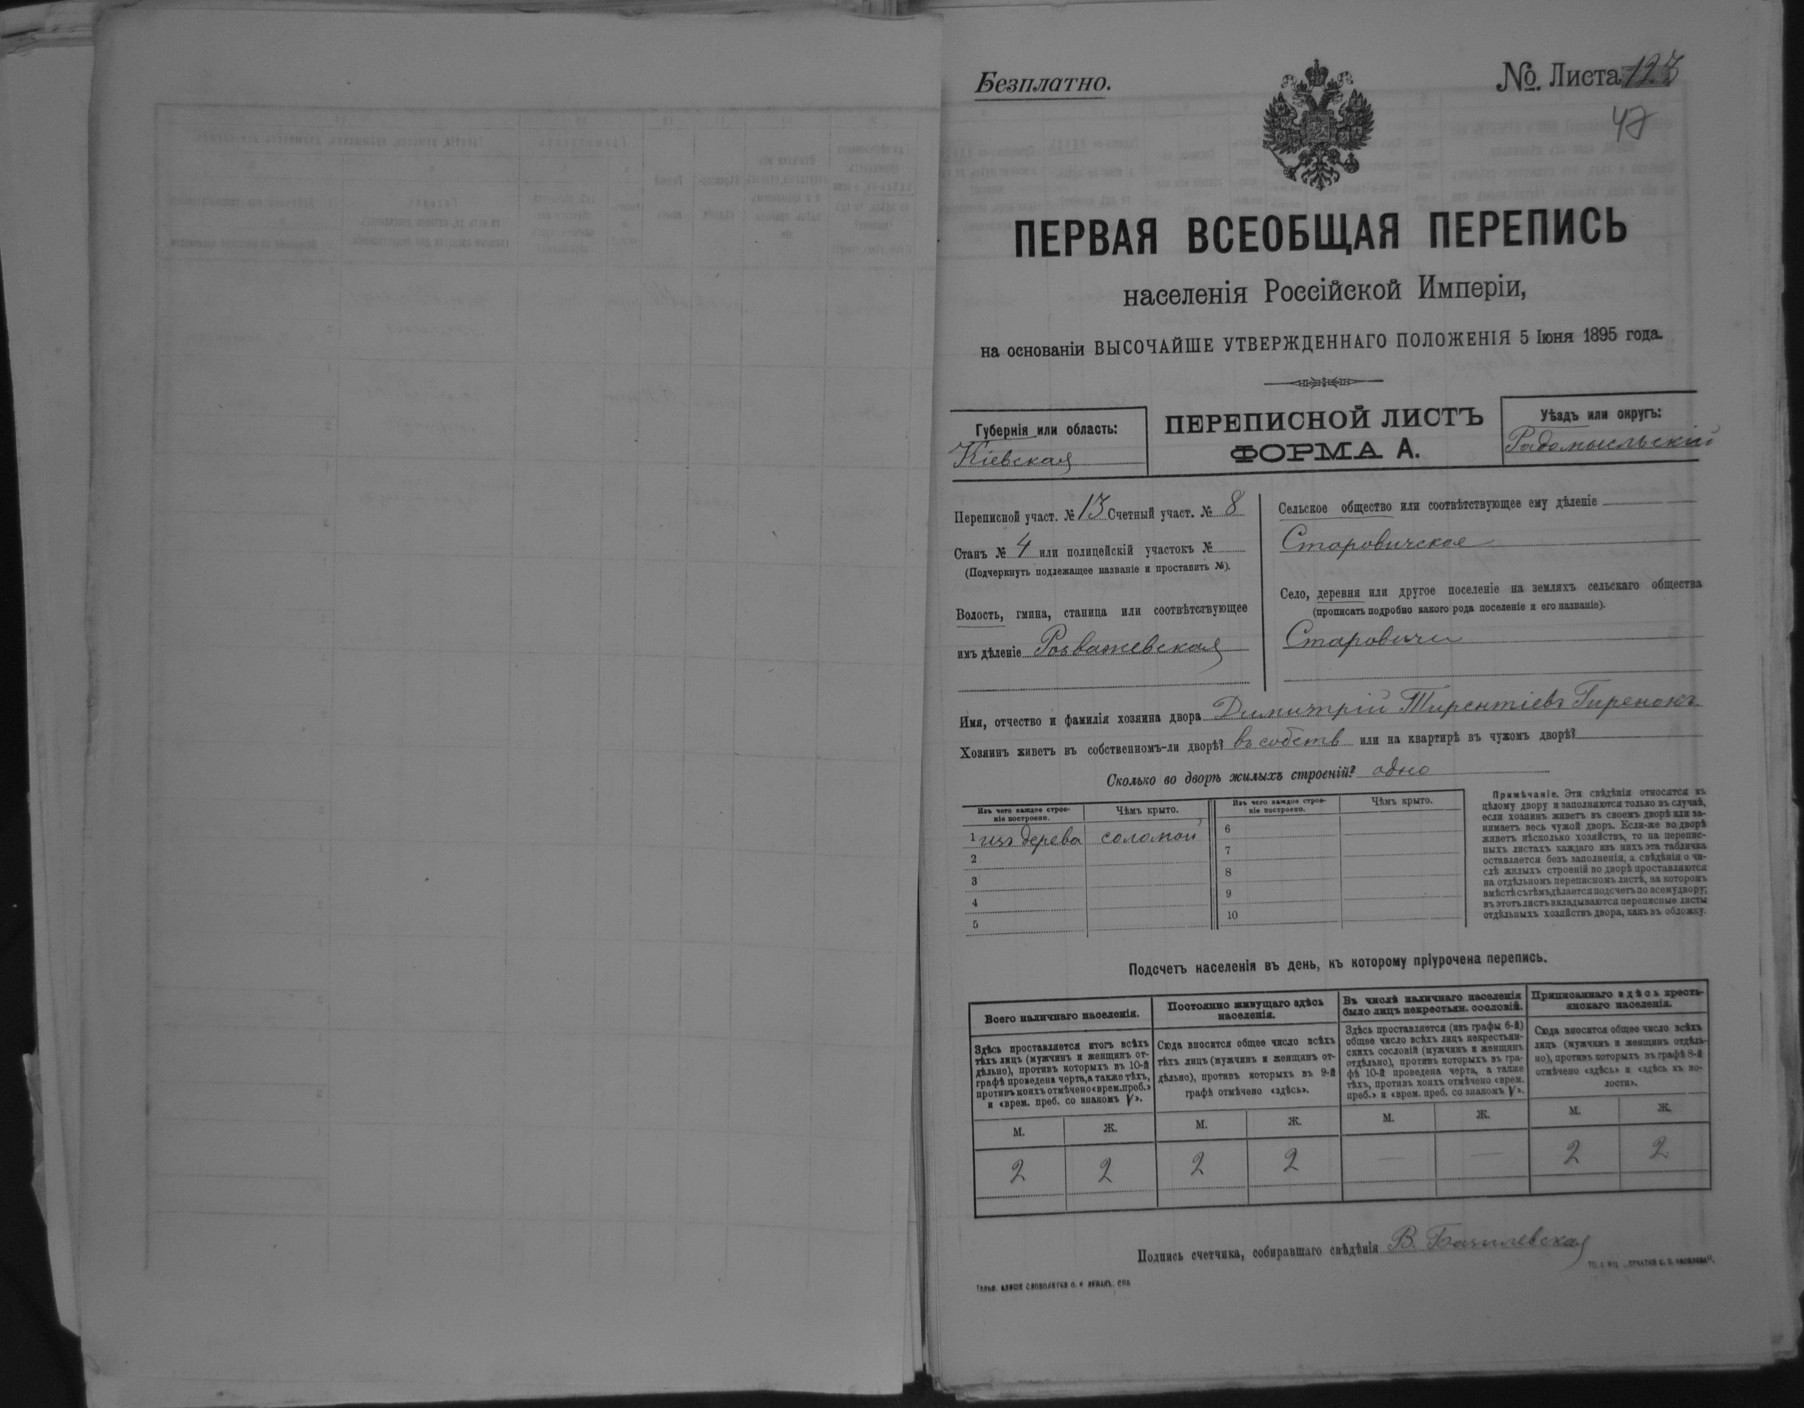 Безплатно.
№ Листа 123
47
ПЕРВАЯ ВСЕОБЩАЯ ПЕРЕПИСЬ
населенія Россійской Имперіи,
на основаніи ВЫСОЧАЙШЕ УТВЕРЖДЕННАГО ПОЛОЖЕНІЯ 5 Іюня 1895 года.
Губернія или область:
Кіевская
ПЕРЕПИСНОЙ ЛИСТЪ
ФОРМА А.
Уѣздъ или округъ:
Радомысльскій
Переписной участ. № 13 Счетный участ. № 8
Станъ № 4 или полицейскій участокъ №
(Подчеркнуть подлежащее названіе и проставить №).
Волость, гмина, станица или соотвѣтствующее
имъ дѣленіе Розважевская
Сельское общество или соотвѣтствующее ему дѣленіе
Старовичское
Село, деревня или другое поселеніе на земляхъ сельскаго общества
(прописать подробно какого рода поселеніе и его названіе).
Старовичи
Имя, отчество и фамилія хозяина двора Димитрій Тирентіевъ Гиренокъ
Хозяинъ живетъ въ собственномъ-ли дворѣ? въ собств или на квартирѣ въ чужомъ дворѣ?
Сколько во дворѣ жилыхъ строеній? одно
Изъ чего каждое строеніе построено.
Чѣмъ крыто.
Изъ чего каждое строеніе построено.
Чѣмъ крыто.
1 изъ дерева соломой
2
3
4
5
6
7
8
9
10
Примѣчаніе. Эти свѣдѣнія относятся къ
цѣлому двору и заполняются только въ случаѣ,
если хозяинъ живетъ въ своемъ дворѣ или за-
нимаетъ весь чужой дворъ. Если-же во дворѣ
живетъ нѣсколько хозяйствъ, то на перепис-
ныхъ листахъ каждаго изъ нихъ эта табличка
оставляется безъ заполненія, а свѣдѣнія о чи-
слѣ жилыхъ строеній во дворѣ проставляются
на отдѣльномъ переписномъ листѣ, на которомъ
вмѣстѣ съ тѣмъ дѣлается подсчетъ по всему двору;
въ этотъ листъ вкладываются переписные листы
отдѣльныхъ хозяйствъ двора, какъ въ обложку.
Подсчетъ населенія въ день, къ которому пріурочена перепись.
Всего наличнаго населенія.
Здѣсь проставляется итогъ всѣхъ
тѣхъ лицъ (мужчинъ и женщинъ от-
дѣльно), противъ которыхъ въ 10-й
графѣ проведена черта, а также тѣхъ,
противъ коихъ отмѣчено «врем. преб.»
и «врем. преб. со знакомъ V».
Постоянно живущаго здѣсь
населенія.
Сюда вносится общее число всѣхъ
тѣхъ лицъ (мужчинъ и женщинъ от-
дѣльно), противъ которыхъ въ 9-й
графѣ отмѣчено «здѣсь».
Въ числѣ наличнаго населенія
было лицъ некрестьян. сословій.
Здѣсь проставляется (изъ графы 6-й)
общее число всѣхъ лицъ некрестьян-
скихъ сословій (мужчинъ и женщинъ
отдѣльно), противъ которыхъ въ гра-
фѣ 10-й проведена черта, а также
тѣхъ, противъ коихъ отмѣчено «врем.
преб.» и «врем. преб. со знакомъ V».
Приписаннаго здѣсь кресть-
янскаго населенія.
Сюда вносится общее число всѣхъ
лицъ (мужчинъ и женщинъ отдѣль-
но), противъ которыхъ въ графѣ 8-й
отмѣчено «здѣсь» и «здѣсь къ во-
лости».
М. Ж. М. Ж. М. Ж. М. Ж.
2 2 2 2 — — 2 2
Подпись счетчика, собиравшаго свѣдѣнія В. Базилевская